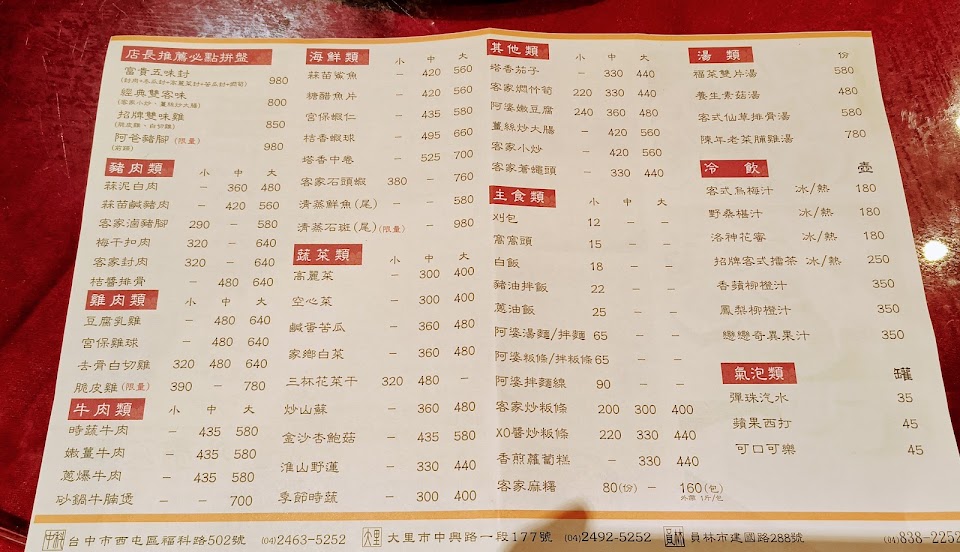 店長推薦必點拼盤
富貴五味封
980
經典雙客味
(客家小炒、薑絲炒大腸) 800
招牌雙味雞
(脆皮雞、白切雞) 850
阿爸豬腳 (限量)
980
豬肉類 小 中 大
蒜泥白肉 – 360 480
蒜苗鹹豬肉 – 420 560
客家滷豬腳 290 – 580
梅干扣肉 320 – 640
客家封肉 320 – 640
桔醬排骨 – 480 640
雞肉類 小 中 大
豆腐乳雞 – 480 640
宮保雞球 – 480 640
去骨白切雞 320 480 640
脆皮雞 (限量) 390 – 780
牛肉類 小 中 大
時蔬牛肉 – 435 580
嫩薑牛肉 – 435 580
蔥爆牛肉 – 435 580
砂鍋牛腩煲 – – 700
海鮮類 小 中 大
蒜苗鯊魚 – 420 560
糖醋魚片 – 420 560
宮保蝦仁 – 435 580
桔香蝦球 – 495 660
塔香中卷 – 525 700
客家石頭蝦 380 – 760
清蒸鮮魚(尾) – – 580
清蒸石斑(尾)(限量) – – 980
蔬菜類 小 中 大
高麗菜 – 300 400
空心菜 – 300 400
鹹蛋苦瓜 – 360 480
家鄉白菜 – 360 480
三杯花菜干 320 480 –
炒山蘇 – 360 480
金沙杏鮑菇 – 435 580
淮山野蓮 – 330 440
季節時蔬 – 300 400
其他類 小 中 大
塔香茄子 – 330 440
客家燜竹筍 220 330 440
阿婆嫩豆腐 240 360 480
薑絲炒大腸 – 420 560
客家小炒 – 420 560
客家蒼蠅頭 – 330 440
主食類 小 中 大
刈包 12 – –
窩窩頭 15 – –
白飯 18 – –
豬油拌飯 22 – –
蔥油飯 25 – –
阿婆湯麵/拌麵 65 – –
阿婆粄條/拌粄條 65 – –
阿婆拌麵線 90 – –
客家炒粄條 200 300 400
XO醬炒粄條 220 330 440
香煎蘿蔔糕 – 330 440
客家麻糬 80(份) – 160(包)
外帶 1斤/包
湯類 1份
福菜雙片湯 580
養生素菇湯 480
客式仙草排骨湯 580
陳年老菜脯雞湯 780
冷飲 壺
客式烏梅汁 冰/熱 180
野桑椹汁 冰/熱 180
洛神花蜜 冰/熱 180
招牌客式擂茶 冰/熱 250
香蘋柳橙汁 350
鳳梨柳橙汁 350
戀戀奇異果汁 350
氣泡類 罐
彈珠汽水 35
蘋果西打 45
可口可樂 45
中科 台中市西屯區福科路502號 (04)2463-5252 大里 大里市中興路一段177號 (04)2492-5252 員林 員林市建國路288號 (04)838-2252